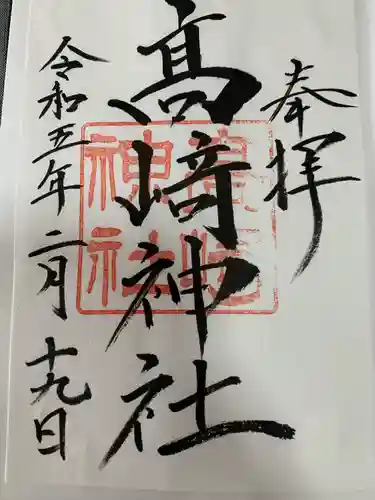 奉拝
髙﨑神社
令和五年二月十九日